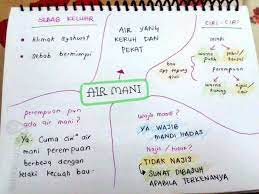 SEBAB KELUAR
• Akibat syahwat
• Sebab bermimpi
AIR YANG
KERUH DAN
PEKAT
CIRI-CIRI
warna
putih
perempuan
warna
AIR MANI
perempuan pun
ada air mani?
Ya. Cuma ciri² air
mani perempuan
berbeza dengan
lelaki kecuali bau.
Wajib mandi?
Ya. WAJIB
MANDI HADAS
Najis / tidak?
TIDAK NAJIS
SUNAT DIBASUH
APABILA TERKENANYA